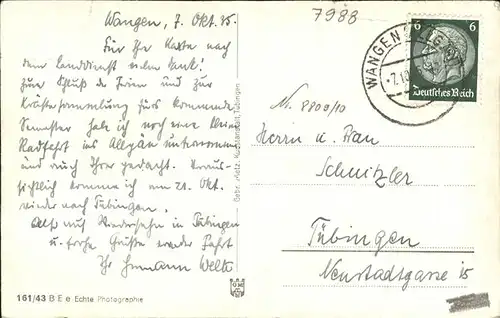 Wangen, 7. Okt. 35.
Für Ihre Karte nach
dem Landdienst vielen Dank!
Zum Schluß der Ferien und zur
Kräftesammlung fürs kommende
Semester habe ich noch eine kleine
Radfahrt ins Allgäu unternommen
und auch Ihrer gedacht. Voraus-
sichtlich komme ich am 21. Okt.
wieder nach Tübingen.
Also auf Wiedersehn in Tübingen
u. frohe Grüße von der Fahrt
Ihr Hermann Welte
161/43 B E e Echte Photographie
Gebr. Metz, Kunstanstalt, Tübingen
7988
WANGEN
6 6
Deutsches Reich
N. 8800/10
Herrn u. Frau
Schnitzler
Tübingen
Neustadtgasse 15